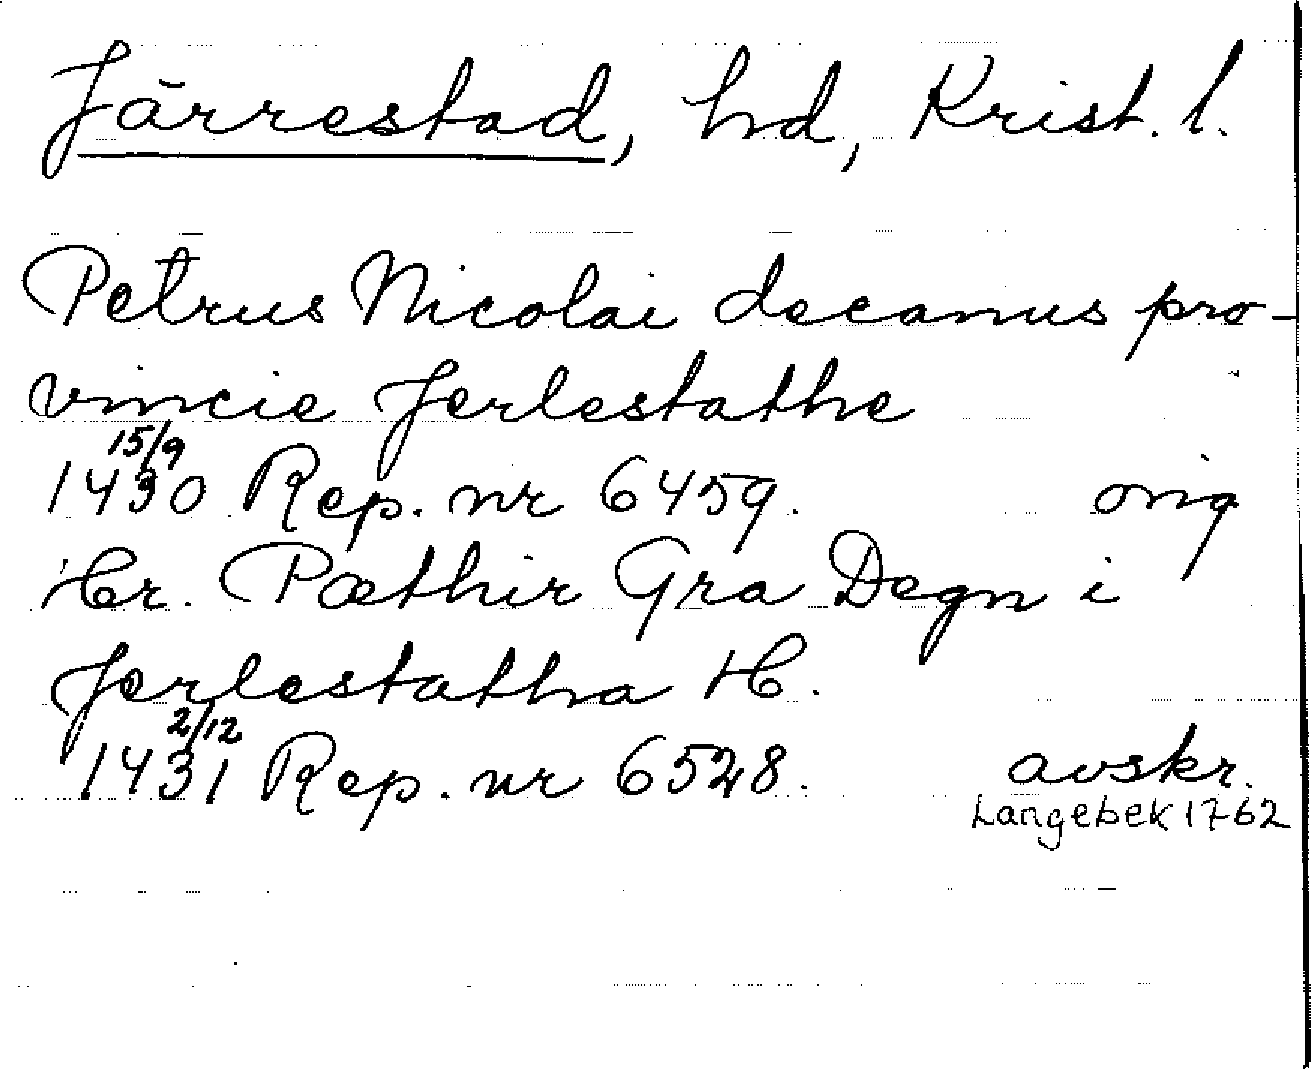 Järrestad, hd, Krist. l.
Petrus Nicolai decanus pro-
vincie Jerlestathe
15/9
1430 Rep. nr 6459. orig
Hr. Pæthir Gra Degn i
Jerlestatha H.
2/12
1431 Rep. nr 6528. avskr.
Langebek 1762